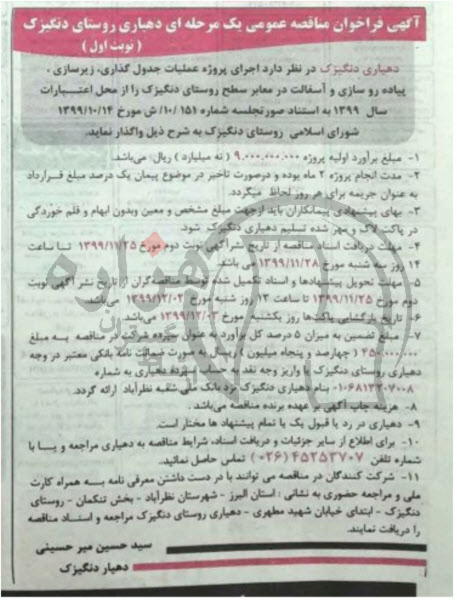 آگهی فراخوان مناقصه عمومی یک مرحله ای دهیاری روستای دنگیزک
( نوبت اول )
دهیاری دنگیزک در نظر دارد اجرای پروژه عملیات جدول گذاری، زیرسازی ،
پیاده رو سازی و آسفالت در معابر سطح روستای دنگیزک را از محل اعتبارات
سال ۱۳۹۹ به استناد صورتجلسه شماره ۱۵۱/ ۱۰/ش مورخ ۱۳۹۹/۱۰/۱۴
شورای اسلامی روستای دنگیزک به شرح ذیل واگذار نماید.
۱- مبلغ برآورد اولیه پروژه ۹.۰۰۰.۰۰۰.۰۰۰ ( نه میلیارد ) ریال می‌باشد.
۲- مدت انجام پروژه ۲ ماه بوده و درصورت تاخیر در موضوع پیمان یک درصد مبلغ قرارداد
به عنوان جریمه برای هر روز لحاظ میگردد.
۳- بهای پیشنهادی پیمانکاران باید ازجهت مبلغ مشخص و معین وبدون ابهام و قلم خوردگی
در پاکت لاک و مهر شده تسلیم دهیاری دنگیزک شود.
۴- مهلت دریافت اسناد مناقصه از تاریخ نشر آگهی نوبت دوم مورخ ۱۳۹۹/۱۱/۲۵ تا ساعت
۱۴ روز سه شنبه مورخ ۱۳۹۹/۱۱/۲۸ می باشد.
۵- مهلت تحویل پیشنهادها و اسناد تکمیل شده توسط مناقصه‌گران از تاریخ نشر آگهی نوبت
دوم مورخ ۱۳۹۹/۱۱/۲۵ تا ساعت ۱۴ روز شنبه مورخ ۱۳۹۹/۱۲/۰۲ می باشد.
۶- تاریخ بازگشایی پاکت‌ها روز یکشنبه مورخ ۱۳۹۹/۱۲/۰۳ می‌باشد.
۷- مبلغ تضمین به میزان ۵ درصد کل برآورد به عنوان سپرده شرکت در مناقصه به مبلغ
۴۵۰.۰۰۰.۰۰۰ ( چهارصد و پنجاه میلیون ) ریال به صورت ضمانت نامه بانکی معتبر در وجه
دهیاری روستای دنگیزک یا واریز وجه نقد به حساب سپرده دهیاری به شماره
بنام دهیاری دنگیزک نزد بانک ملی شعبه نظرآباد ارائه گردد.
۸- هزینه چاپ آگهی بر عهده برنده مناقصه می‌باشد .
۹- دهیاری در رد یا قبول یک یا تمام پیشنهاد ها مختار است.
۱۰- برای اطلاع از سایر جزئیات و دریافت اسناد، شرایط مناقصه به دهیاری مراجعه و یا با
شماره تلفن ۴۵۳۵۳۷۰۷ (۰۲۶) تماس حاصل نمائید.
۱۱- شرکت کنندگان در مناقصه می توانند با در دست داشتن معرفی نامه به همراه کارت
ملی و مراجعه حضوری به نشانی : استان البرز - شهرستان نظرآباد - بخش تنکمان - روستای
دنگیزک - ابتدای خیابان شهید مطهری - دهیاری روستای دنگیزک مراجعه و اسناد مناقصه
را دریافت نمایند.
سید حسین میر حسینی
دهیار دنگیزک